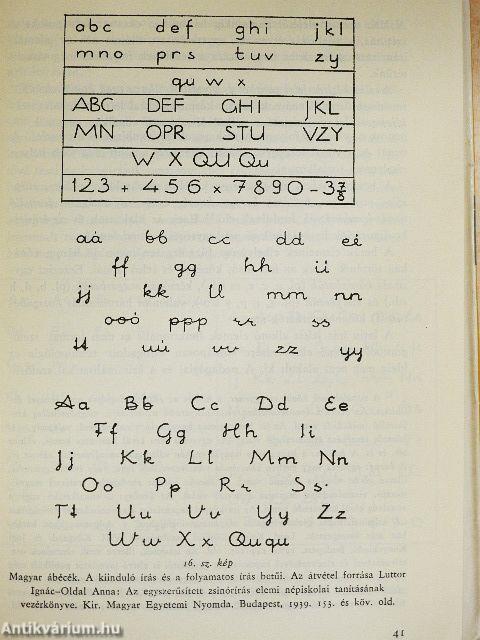 abc def ghi jkl
mno prs tuv zy
qu w x
ABC DEF GHI JKL
MN OPR STU VZY
W X QU Qu
123 + 456 × 7890 - 3 7/8
aá bb cc dd eé
ff gg hh ií
jj kk ll mm nn
ooó ppp rr ss
tt uú vv zz yy
Aa Bb Cc Dd Ee
Ff Gg Hh Ii
Jj Kk Ll Mm Nn
Oo Pp Rr Ss
Tt Uu Vv Yy Zz
Ww Xx Ququ
16. sz. kép
Magyar ábécék. A kiinduló írás és a folyamatos írás betűi. Az átvétel forrása Luttor
Ignác–Oldal Anna: Az egyszerűsített zsinórírás elemi népiskolai tanításának
vezérkönyve. Kir. Magyar Egyetemi Nyomda, Budapest, 1939. 153. és köv. old.
41
Antikvárium.hu